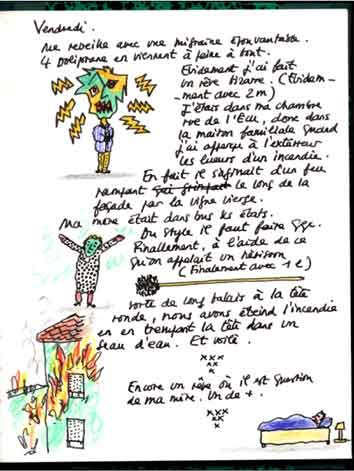 Vendredi.
Me réveille avec une migraine épouvantable.
4 Doliprane en viennent à peine à bout.
Evidement j'ai fait
un rêve bizarre. (Evidem-
-ment avec 2m)
J'étais dans ma chambre
rue de l'Ecu, donc dans
la maison familiale quand
j'ai aperçu à l'extérieur
les lueurs d'un incendie.
En fait il s'agissait d'un feu
rampant le long de la
façade par la vigne vierge.
Ma mère était dans tous les états.
Du style il faut faire qqe.
Finallement, à l'aide de ce
qu'on appelait un hérisson
(Finalement avec 1 l)
sorte de long balais à la tête
ronde, nous avons éteint l'incendie
en en trempant la tête dans un
seau d'eau. Et voilà.
xxx
xx
x
Encore un rêve où il est question
de ma mère. Un de +.
xxx
xx
x